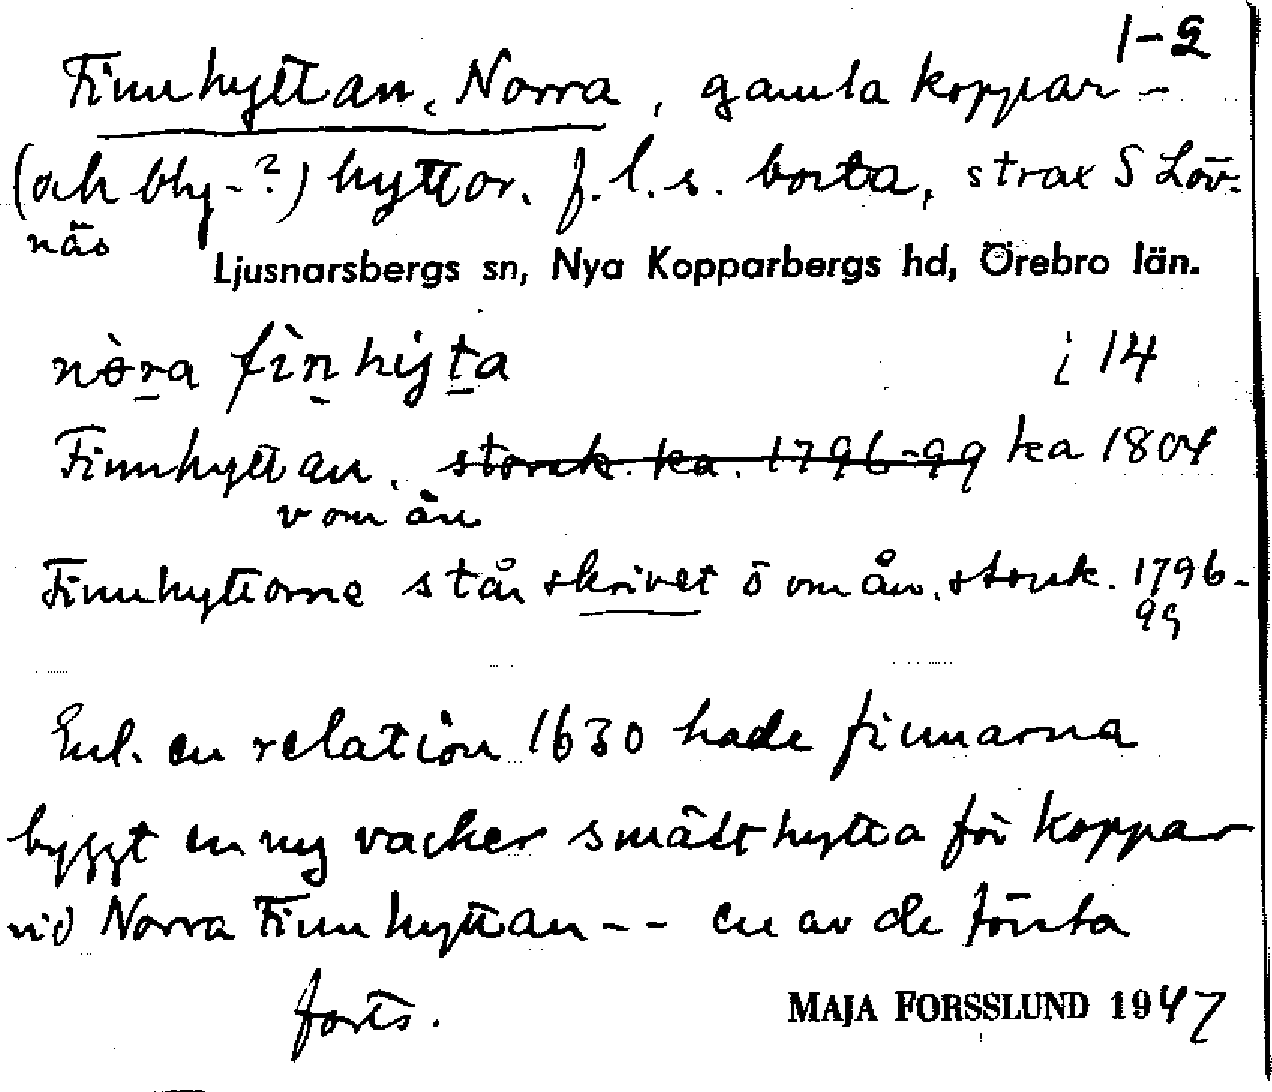 1-2
Finnhyttan, Norra, gamla koppar-
(och bly-?) hyttor. f.l.s. borta, strax S Löv-
näs
Ljusnarsbergs sn, Nya Kopparbergs hd, Örebro län.
nòra fìnhyta i 14
Finnhyttan. storsk. ka. 1796-99 ka 1804
v om ån
Finnhyttorne står skrivet ö om ån. storsk. 1796-
99
Enl. en relation 1630 hade finnarna
byggt en ny vacker smälthytta för koppar
vid Norra Finnhyttan -- en av de första
forts.
MAJA FORSSLUND 1947